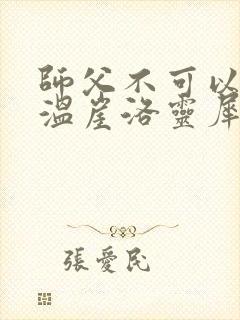 師父不可以
溫崖洛靈犀
張愛民